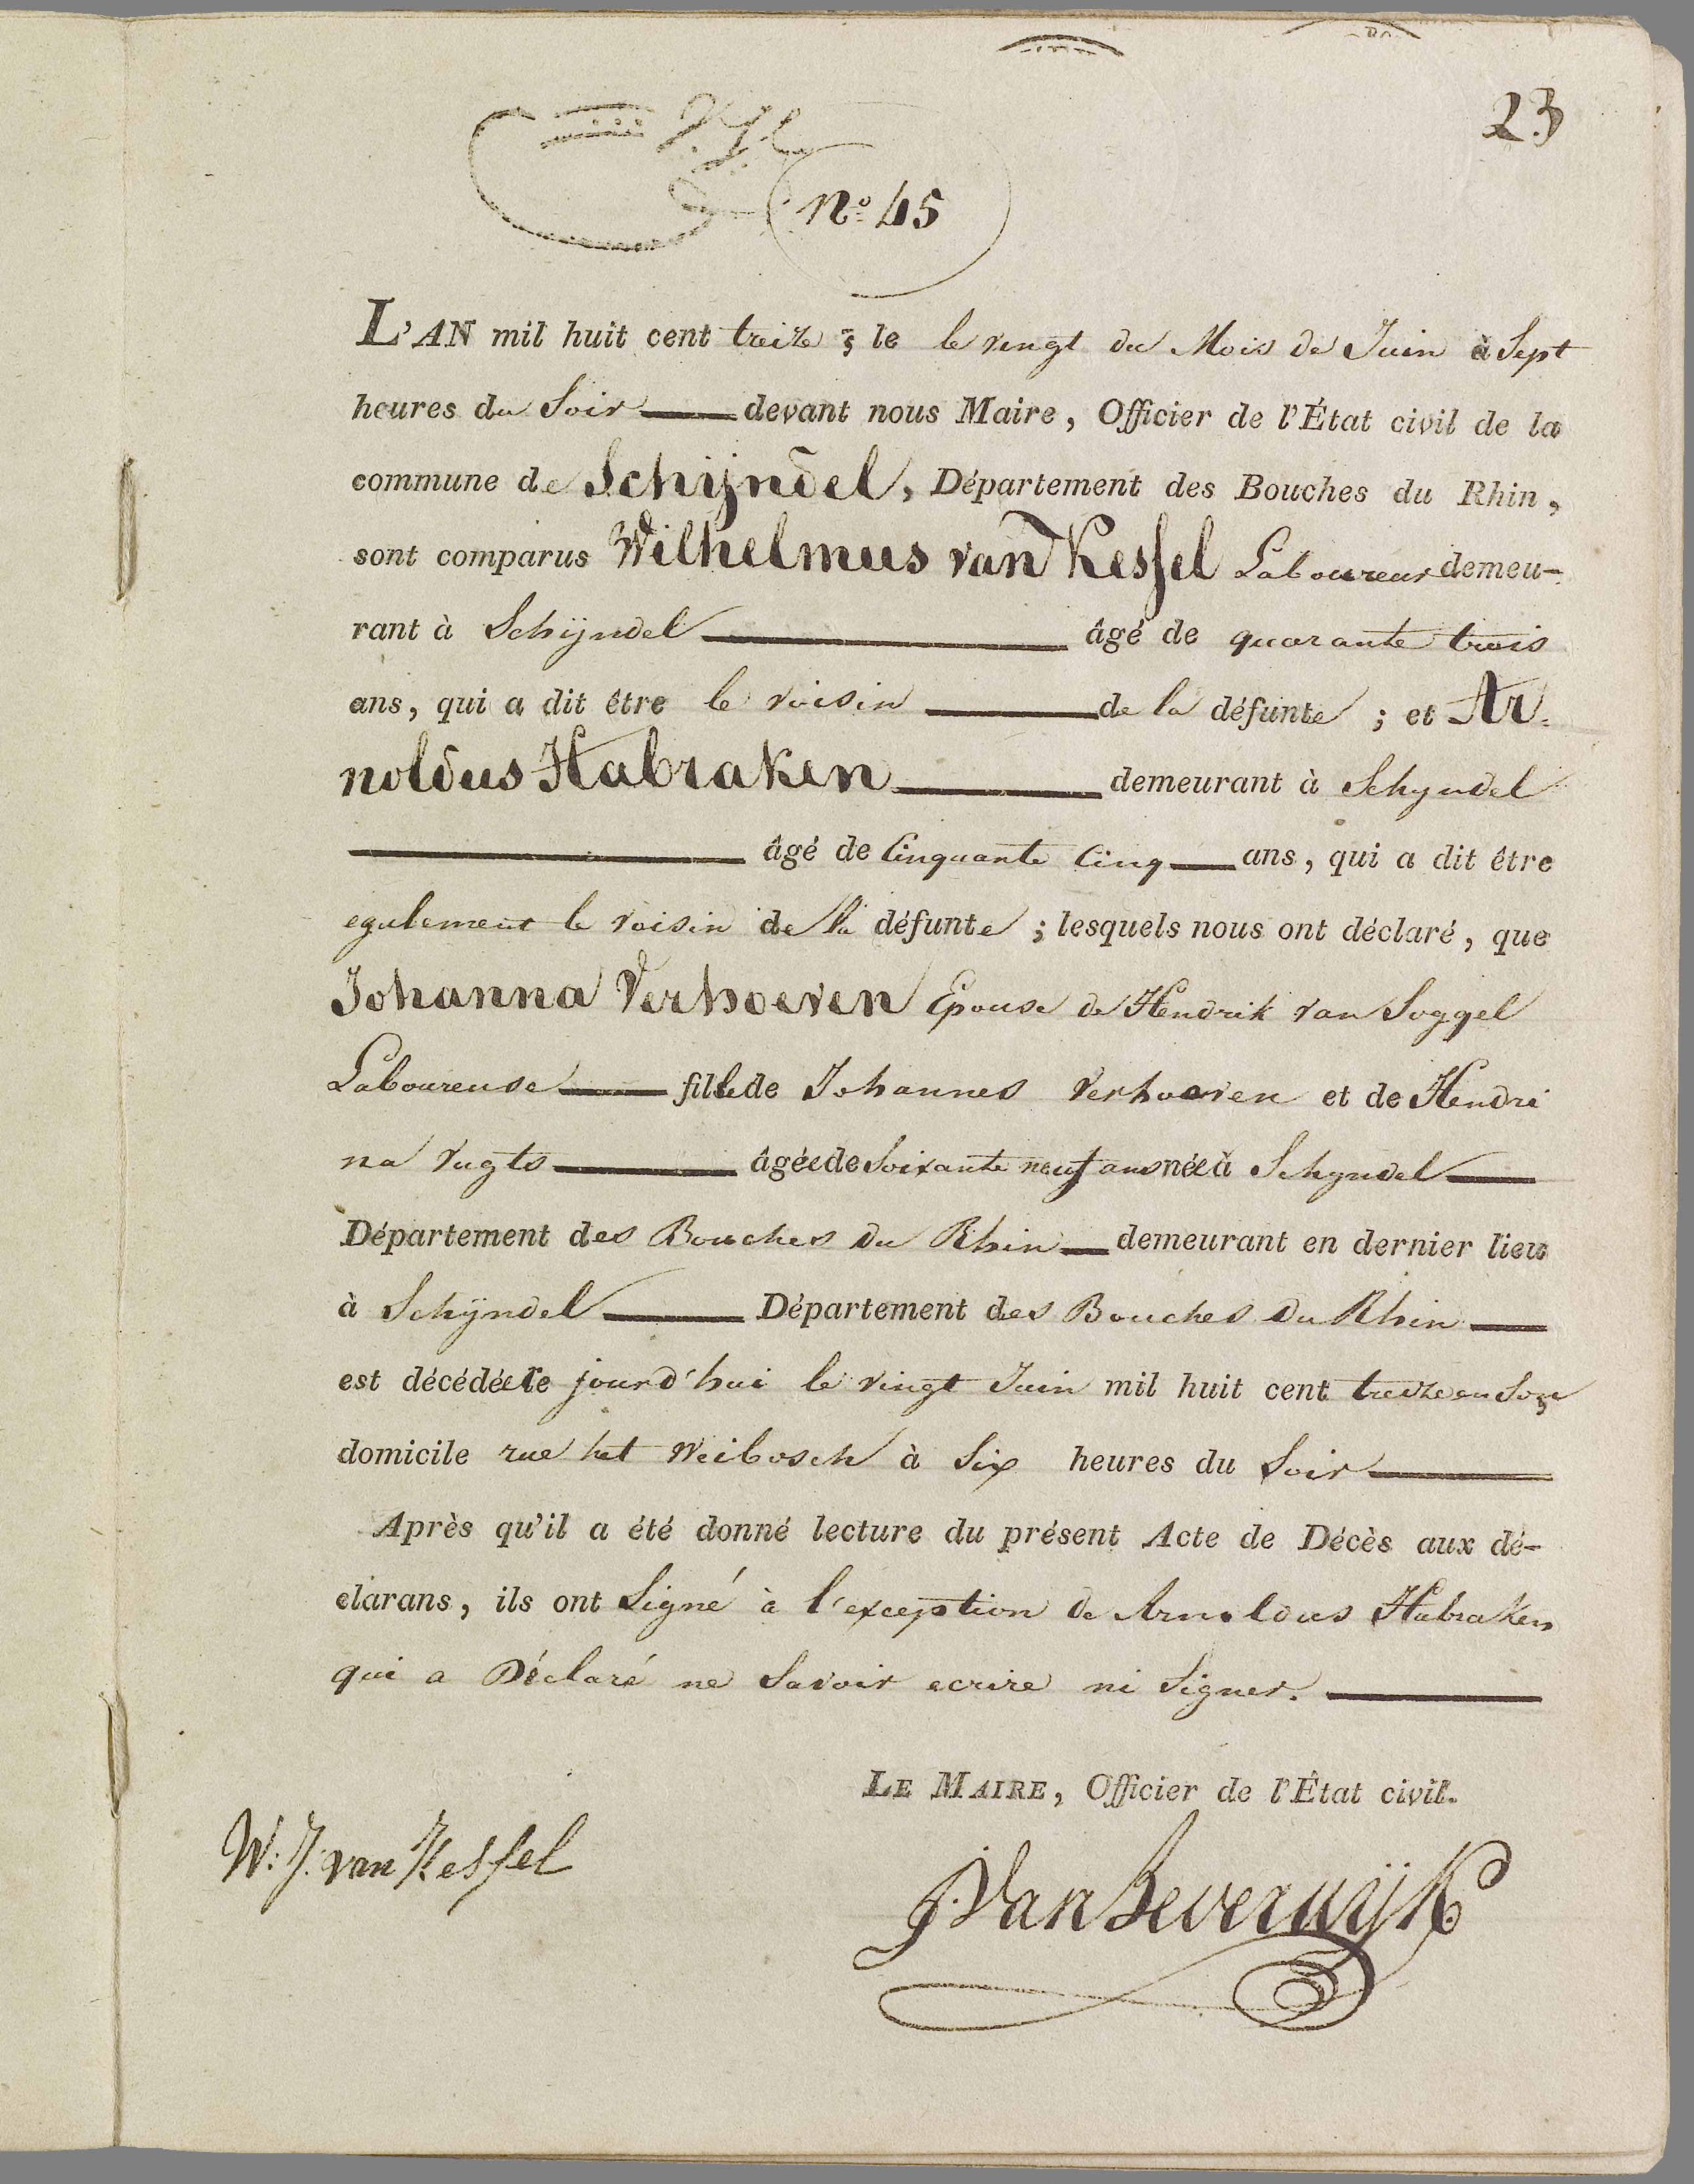 23
No 45
L'AN mil huit cent treize, le le vingt du Mois de Juin à Sept
heures du Soir devant nous Maire, Officier de l'État civil de la
commune de Schijndel, Département des Bouches du Rhin,
sont comparus Wilhelmus van Kessel Laboureur demeu-
rant à Schijndel âgé de quarante trois
ans, qui a dit être le voisin de la défunte ; et Ar-
noldus Habraken demeurant à Schyndel
âgé de Cinquante Cinq ans, qui a dit être
egalement le voisin de la défunte ; lesquels nous ont déclaré, que
Johanna Verhoeven Epouse de Hendrik van Soggel
Laboureuse fille de Johannes Verhoeven et de Hendri
na Vugts âgée de Soixante neuf ans née à Schyndel
Département des Bouches du Rhin demeurant en dernier lieu
à Schijndel Département des Bouches du Rhin
est décédée le jourd'hui le vingt Juin mil huit cent treize en Son
domicile rue het Weibosch à Six heures du Soir
Après qu'il a été donné lecture du présent Acte de Décès aux dé-
clarans, ils ont Signé à l'exception de Arnoldus Habraken
qui a Déclaré ne Savoir ecrire ni Signer.
LE MAIRE, Officier de l'État civil.
W: J. van Kessel
J. Van Beverwijk